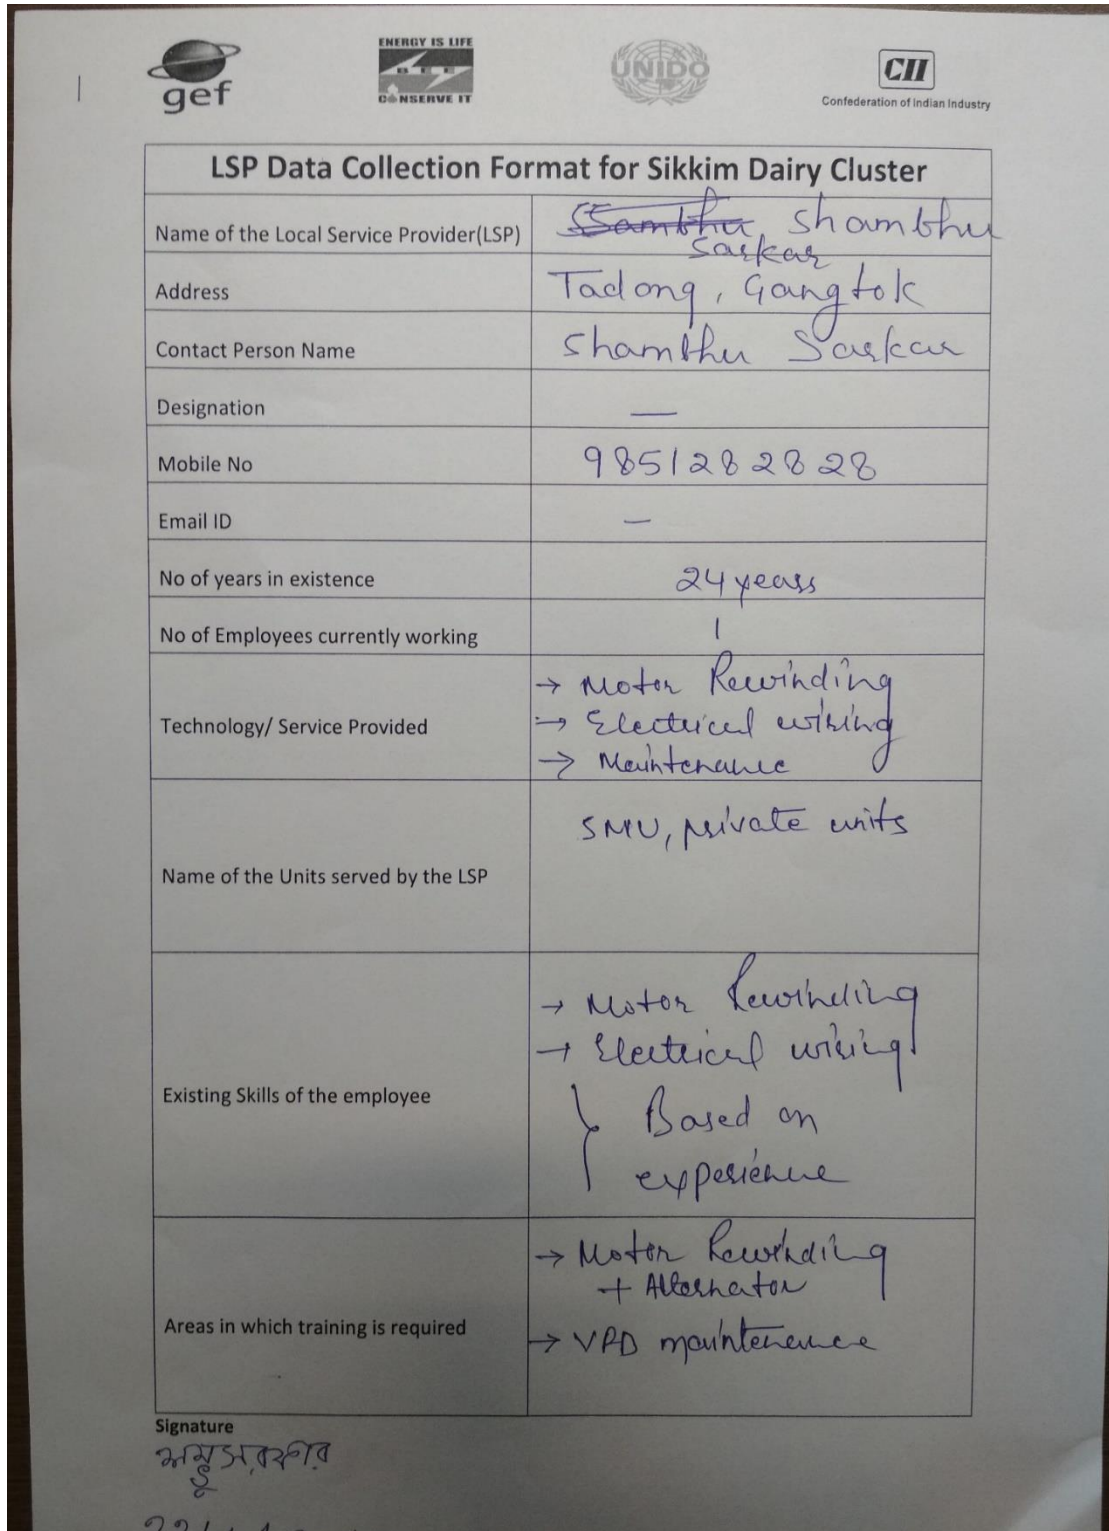 ENERGY IS LIFE
BEE
CONSERVE IT
gef
UNIDO
CII
Confederation of Indian Industry
LSP Data Collection Format for Sikkim Dairy Cluster
Name of the Local Service Provider(LSP) Shambhu
Sarkar
Address Tadong, Gangtok
Contact Person Name Shambhu Sarkar
Designation —
Mobile No 9851282828
Email ID —
No of years in existence 24 years
No of Employees currently working 1
Technology/ Service Provided
→ Motor Rewinding
→ Electrical wiring
→ Maintenance
Name of the Units served by the LSP SMU, private units
Existing Skills of the employee
→ Motor Rewinding
→ Electrical wiring
Based on
experience
Areas in which training is required
→ Motor Rewinding
+ Alternator
→ VFD maintenance
Signature
শম্ভু সরকার